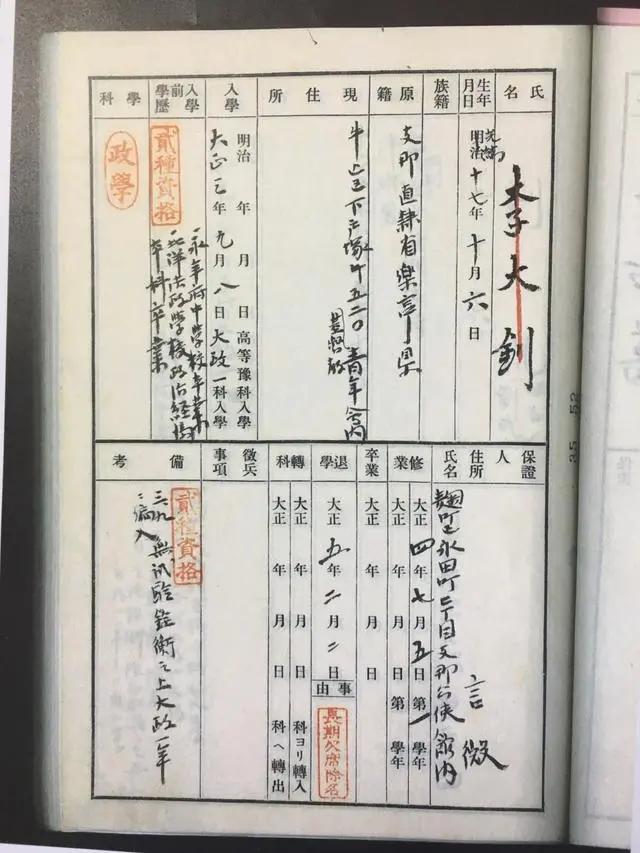 氏名
李大釗
生年月日
光緒
明治十七年十月六日
族籍
原籍
支那直隷省楽亭県
現住所
牛込区下戸塚町五二〇
青年会内
入學
明治 年 月 日高等豫科入學
大正三年九月八日大政一科入學
入學前學歷
貳種資格
一、永年府中学校卒業
一、北洋法政学校政治経済
本科卒業
學科
政學
保證人
住所
氏名
麹町区永田町二丁目支那公使館内
言微
修業
大正四年七月五日第一學年
大正 年 月 日第 學年
卒業
大正 年 月 日
退學
大正五年二月二日
事由
長期欠席除名
轉科
大正 年 月 日 科ヨリ轉入
大正 年 月 日 科ヘ轉出
徵兵事項
備考
貳種資格
三、九、無試驗銓衡之上大政一年
ニ編入